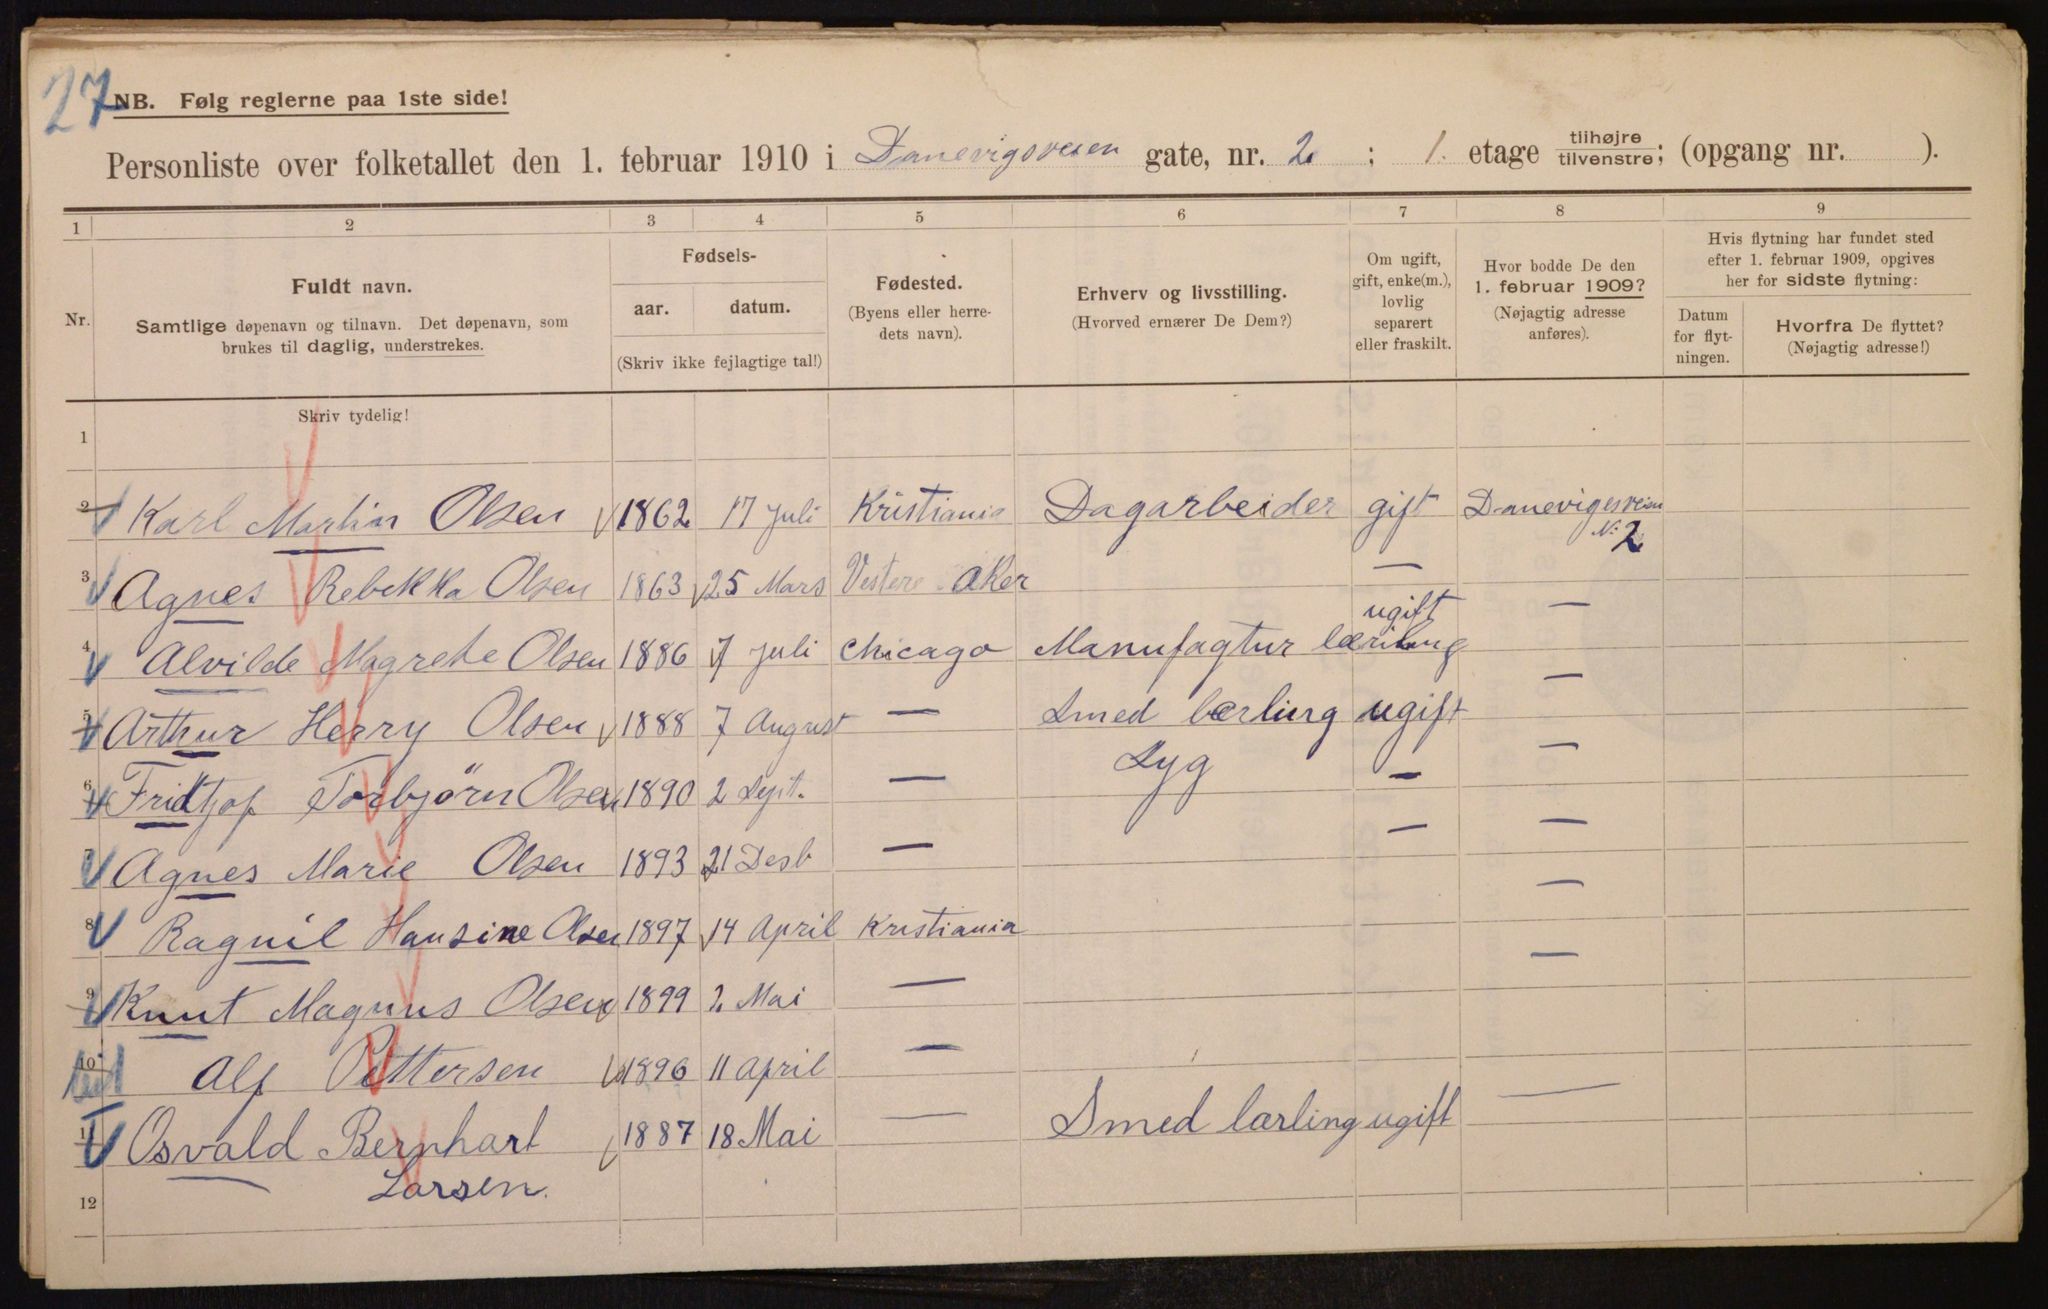 27
NB. Følg reglerne paa 1ste side!
Personliste over folketallet den 1. februar 1910 i Danevigsveien gate, nr. 2 ; 1. etage tilhøjre tilvenstre; (opgang nr. ).
1 2 3 4 5 6 7 8 9
Nr.
Fuldt navn.
Samtlige døpenavn og tilnavn. Det døpenavn, som
brukes til daglig, understrekes.
Fødsels-
aar. datum.
(Skriv ikke fejlagtige tal!)
Fødested.
(Byens eller herre-
dets navn).
Erhverv og livsstilling.
(Hvorved ernærer De Dem?)
Om ugift,
gift, enke(m.),
lovlig
separert
eller fraskilt.
Hvor bodde De den
1. februar 1909?
(Nøjagtig adresse
anføres).
Hvis flytning har fundet sted
efter 1. februar 1909, opgives
her for sidste flytning:
Datum
for flyt-
ningen.
Hvorfra De flyttet?
(Nøjagtig adresse!)
Skriv tydelig!
1
2 Karl Martin Olsen 1862 17 Juli Kristiania Dagarbeider gift Danevigesveien
N: 2
3 Agnes Rebekka Olsen 1863 25 Mars Vestere Aker —
4 Alvilde Magrete Olsen 1886 7 Juli Chicago Manufagtur lærling ugift —
5 Arthur Herry Olsen 1888 7 August — Smed lærling ugift —
6 Fridtjof Torbjørn Olsen 1890 2 Sept. — Syg — —
7 Agnes Marie Olsen 1893 21 Desb — — —
8 Ragnil Hansine Olsen 1897 14 April Kristiania —
9 Knut Magnus Olsen 1899 2 Mai — —
10 Alf Pettersen 1896 11 April —
11 Osvald Bernhart 1887 18 Mai — Smed lærling ugift —
Larsen.
12